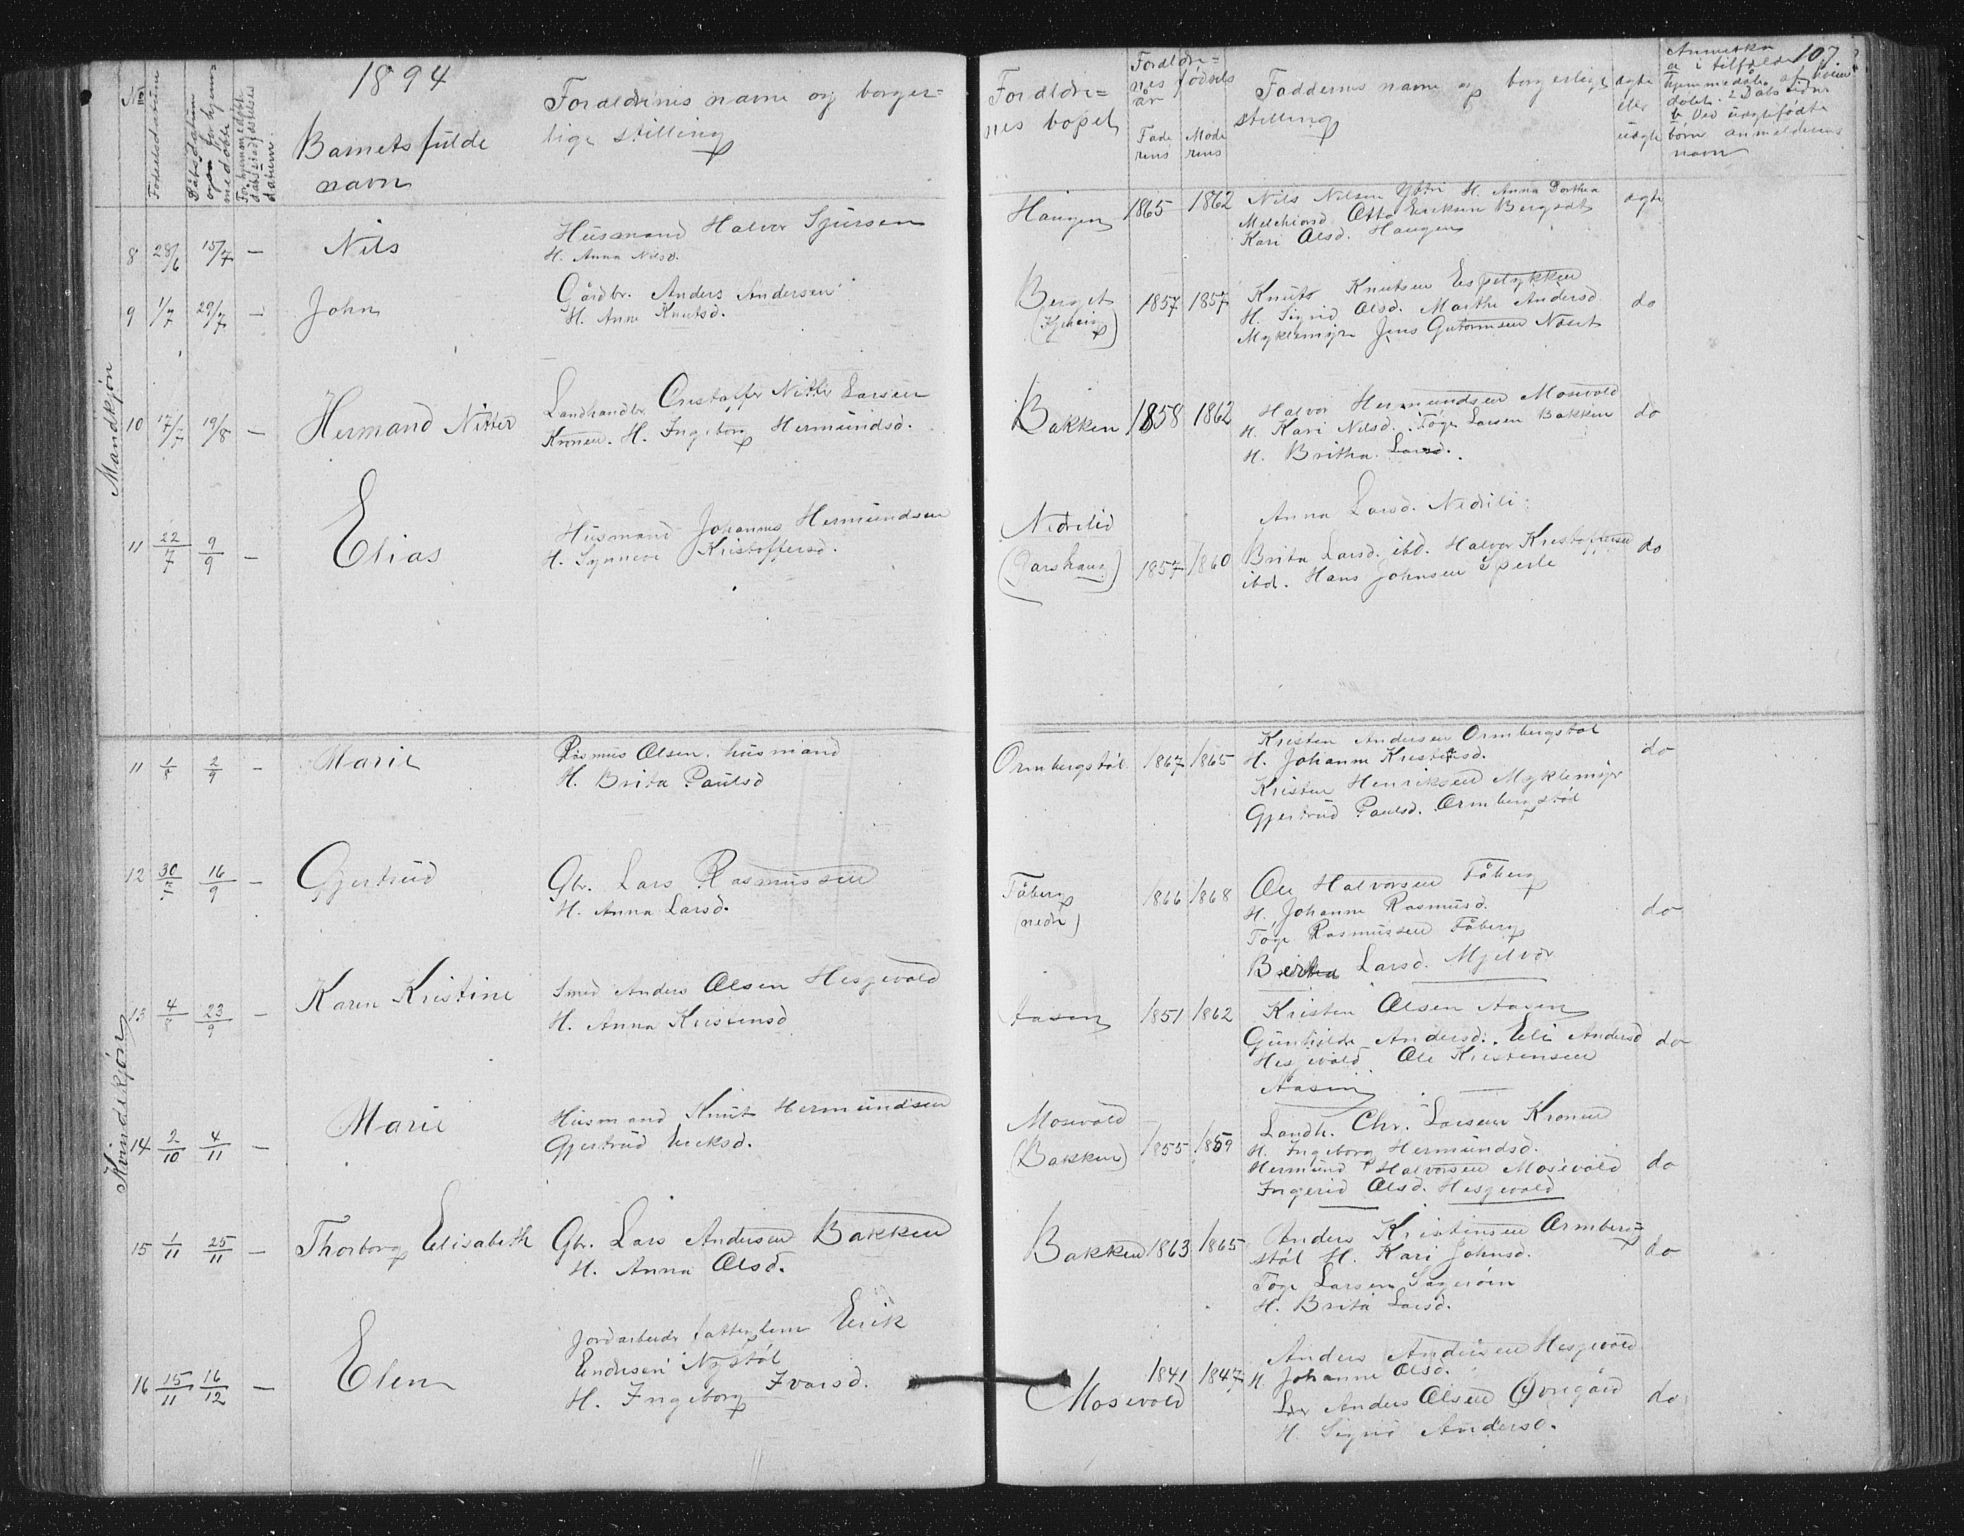 1894
107.
Fødselsdatum
Barnets fulde
navn
Foraldrenes navn og borger=
lige stilling
Foraldre=
nes bopæl
Foraldre=
nes fødsels
år
Fade
rens
Mode
rens
Faddernes navn og borgerlige
stilling
ægte
eller
uægte
Mandkjøn
8 28/6 15/7 — Nils Husmand Halvor Sjursen
H. Anna Nilsd.
Haugen 1865 1862 Nils Nilsen H. Anna Dorthea
Melchiord Otto Eriksen
Kari Olsd. Haugen
ægte
9 1/7 29/7 — John Gårdbr. Anders Andersen
H. Anne Knutsd.
Berget 1857 1857 Knut Knutsen Espelykken
H. Sigrid Olsd. Marthe Andersd
Myklemyr Jens Gutormsen
do
10 17/7 19/8 — Hermand Nitter Landhandler Cristoffer Nitter Larsen
Kronen. H. Ingeborg Hermundsd.
Bakken 1858 1862 Halvor Hermundsen Mosevold
H. Kari Nilsd. Tøge Larsen Bakken
H. Britha Larsd.
do
11 22/7 9/9 — Elias Husmand Johannes Hermundsen
H. Synneve Kristoffersd.
Nedrelid 1857 1860 Anna Larsd. Nedreli.
Brita Larsd. ibd. Halvor Kristoffersen
ibd. Hans Johnsen Sperle
do
Kvindekjøn
11 1/8 2/9 — Marie Rasmus Olsen husmand
H. Brita Paulsd
Ormbergstøl 1867 1865 Kristen Andersen Ormbergstøl
H. Johanne Kristensd.
Kristen Henriksen Myklemyr
Gjertrud Paulsd. Ormbergstøl
do
12 30/7 16/9 — Gjertrud Gbr. Lars Rasmussen
H. Anna Larsd.
Fåberg
(nedre)
1866 1868 Ole Halvorsen Fåberg
H. Johanne Rasmusd.
Tøge Rasmussen Fåberg
Larsd. Mjelvær
do
13 4/8 23/9 — Karen Kristine Smed Anders Olsen Hesjevold
H. Anna Kristensd
Aasen 1851 1862 Kristen Olsen Aasen
Gunhilde Andersd. Eli Andersd
Hesjevold Ole Kristensen
Aasen
do
14 2/10 4/11 — Marie Husmand Knut Hermundsen
Gjertrud Eriksd.
Mosevold
(Bakken)
1855 1859 Landh. Chr. Larsen Kronen
H. Ingeborg Hermundsd.
Hermund Halvorsen Mosevold
Ingerid Olsd. Hesjevold
do
15 1/11 25/11 — Thorborg Elisabeth Gbr. Lars Andersen Bakken
H. Anna Olsd.
Bakken 1863 1865 Anders Kristensen Ormberg=
støl H. Kari Johnsd.
Tøge Larsen
H. Brita Larsd.
do
16 15/11 16/12 — Elen Jordarbeider fattiglem Erik
Endresen Nystøl
H. Ingeborg Ivarsd.
Mosevold 1841 1847 Anders Andersen Hesjevold
H. Johanne Olsd.
Anders Olsen Øvregård
H. Signe Andersd.
do